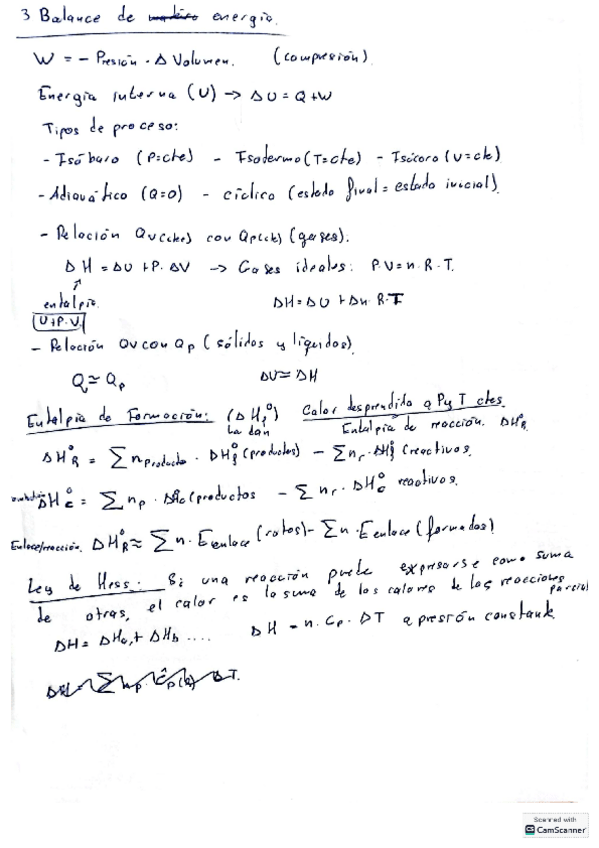 3 Balance de energía.
W = - Presión · Δ Volumen. (compresión)
Energía interna (U) → ΔU = Q + W
Tipos de proceso:
- Isóbaro (P=cte) - Isotermo (T=cte) - Isócoro (V=cte)
- Adiabático (Q=0) - cíclico (estado final = estado inicial)
- Relación Qv(cte) con Qp(cte) (gases).
ΔH = ΔU + P · ΔV → Gases ideales: P·V = n·R·T.
entalpía. ΔH = ΔU + Δn·R·T
U+P·V.
- Relación Qv con Qp (sólidos y líquidos)
Q ≃ Qp ΔU ≃ ΔH
Entalpía de Formación: (ΔHf°) Calor desprendido a P y T ctes.
La dan Entalpía de reacción. ΔH°R
ΔH°R = Σ nproducto · ΔH°f (productos) - Σ nr · ΔH°f (reactivos)
ΔH°c = Σ np · ΔH°c (productos - Σ nr · ΔH°c reactivos.
Enlace/reacción. ΔH°R ≈ Σ n · Eenlace (rotos) - Σ n · Eenlace (formados)
Ley de Hess: Si una reacción puede expresarse como suma
de otras, el calor es la suma de los calores de las reacciones parcial
ΔH = ΔHa + ΔHb .... ΔH = n · Cp · ΔT a presión constante
Scanned with
CamScanner